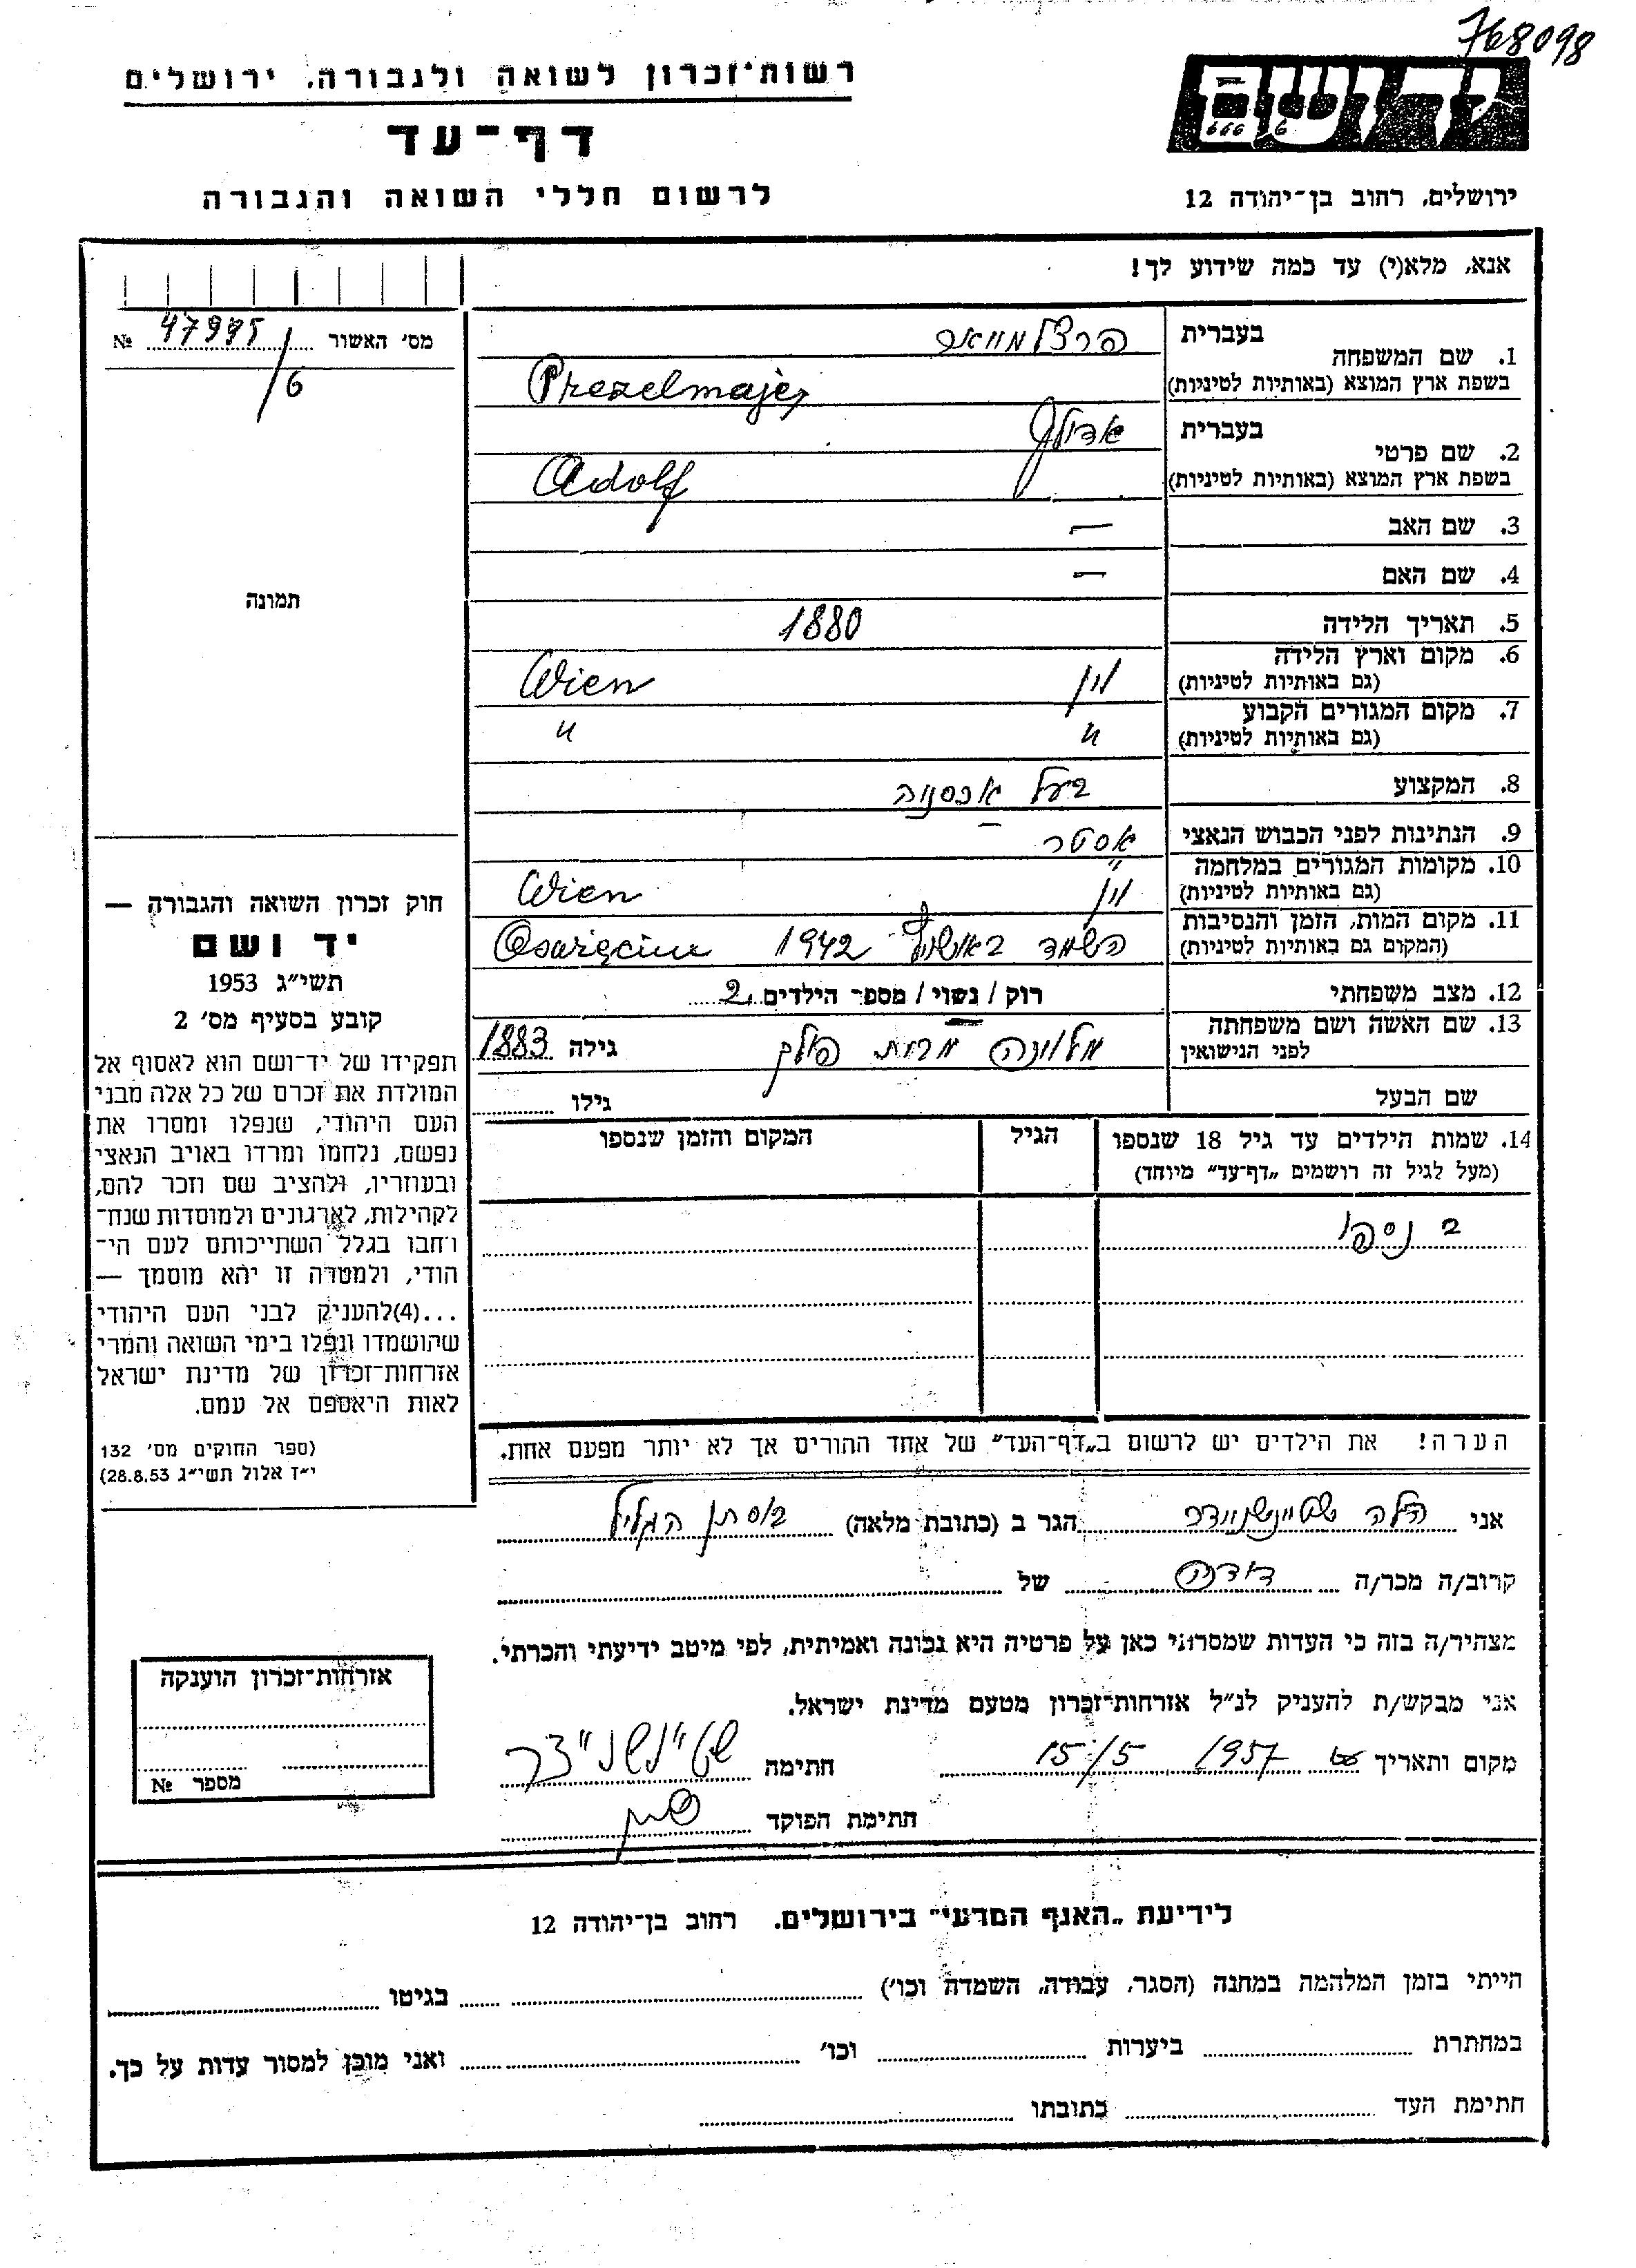 768098
רשות־זכרון לשואה ולגבורה, ירושלים
דף־עד
לרשום חללי השואה והגבורה
יד ושם
ירושלים, רחוב בן־יהודה 12
אנא, מלא(י) עד כמה שידוע לך!
מס׳ האשור 47995/6 №
תמונה
1. שם המשפחה
בעברית
בשפת ארץ המוצא (באותיות לטיניות)
Prezelmajer
2. שם פרטי
בעברית אדולף
בשפת ארץ המוצא (באותיות לטיניות)
Adolf
3. שם האב —
4. שם האם —
5. תאריך הלידה 1880
6. מקום וארץ הלידה
(גם באותיות לטיניות) וין Wien
7. מקום המגורים הקבוע
(גם באותיות לטיניות) " "
8. המקצוע בעל אכסניה
9. הנתינות לפני הכבוש הנאצי אוסטר
10. מקומות המגורים במלחמה
(גם באותיות לטיניות) וין Wien
11. מקום המות, הזמן והנסיבות
(המקום גם באותיות לטיניות) הושמד באושויץ 1942 Oswięcim
12. מצב משפחתי רוק / נשוי / מספר הילדים 2
13. שם האשה ושם משפחתה
לפני הנישואין פולק גילה 1883
שם הבעל גילו
14. שמות הילדים עד גיל 18 שנספו
(מעל לגיל זה רושמים „דף־עד״ מיוחד)
הגיל
המקום והזמן שנספו
2 נספו
הערה! את הילדים יש לרשום ב„דף־העד״ של אחד ההורים אך לא יותר מפעם אחת.
חוק זכרון השואה והגבורה —
יד ושם
תשי״ג 1953
קובע בסעיף מס׳ 2
תפקידו של יד־ושם הוא לאסוף אל
המולדת את זכרם של כל אלה מבני
העם היהודי, שנפלו ומסרו את
נפשם, נלחמו ומרדו באויב הנאצי
ובעוזריו, ולהציב שם וזכר להם,
לקהילות, לארגונים ולמוסדות שנח־
רבו בגלל השתייכותם לעם הי־
הודי, ולמטרה זו יהא מוסמך —
...(4)להעניק לבני העם היהודי
שהושמדו ונפלו בימי השואה והמרי
אזרחות־זכרון של מדינת ישראל
לאות היאספם אל עמם.
(ספר החוקים מס׳ 132
י״ז אלול תשי״ג 28.8.53)
אני הלה שטיינשניידר הגר ב (כתובת מלאה) בוסתן הגליל
קרוב/ה מכר/ה דודנה של
מצהיר/ה בזה כי העדות שמסרתי כאן על פרטיה היא נכונה ואמיתית, לפי מיטב ידיעתי והכרתי.
אני מבקש/ת להעניק לנ״ל אזרחות־זכרון מטעם מדינת ישראל.
מקום ותאריך 15/5 1957 חתימה
חתימת הפוקד
אזרחות־זכרון הוענקה
מספר №
לידיעת „האגף המדעי״ בירושלים. רחוב בן־יהודה 12
הייתי בזמן המלחמה במחנה (הסגר, עבודה, השמדה וכו׳) בגיטו
במחתרת ביערות וכו׳ ואני מוכן למסור עדות על כך.
חתימת העד כתובתו